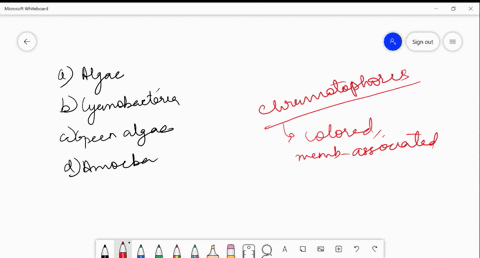 Microsoft Whiteboard
Sign out
a) Algae
b) Cyanobacteria
c) Green algae
d) Amoeba
chromatophores
colored,
memb-associated